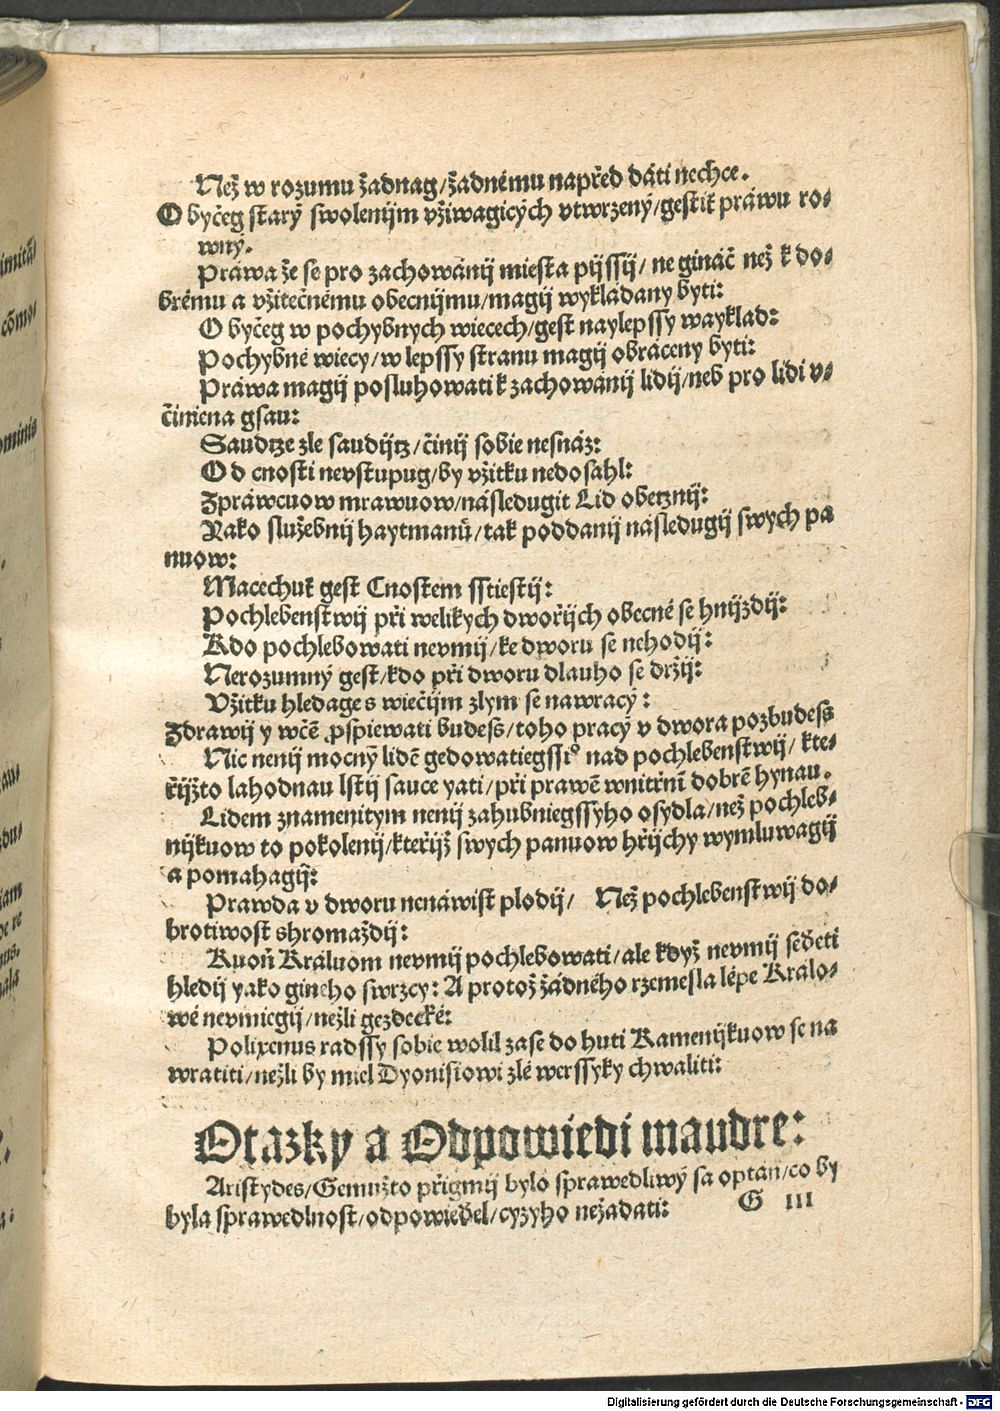 Než w rozumu žadnag/žadnému napřed dáti nechce.
Obyčeg starý swolenijm vžiwagicých vtwrzený/gestiť práwu ro-
wný.
Práwa že se pro zachowánij miesta pijssij/ne gináč než k do-
brému a vžitečnému obecnijmu/magij wykládany byti:
Obyčeg w pochybnych wiecech/gest naylepssy wayklad:
Pochybné wiecy/w lepssy stranu magij obráceny byti:
Práwa magij posluhowati k zachowánij lidij/neb pro lidi v-
činiena gsau:
Saudtze zle saudijtz/činij sobie nesnáz:
Od cnosti nevstupug/by vžitku nedosahl:
Zpráwcuow mrawuow/následugit Lid obetznij:
Yako služebnij haytmanů/tak poddanij následugij swych pa
nuow:
Macechuť gest Cnostem sstiestij:
Pochlebenstwij při welikych dwořijch obecné se hnijzdij:
Kdo pochlebowati nevmij/ke dworu se nehodij:
Nerozumný gest/kdo při dworu dlauho se držij:
Vžitku hledage s wiečijm zlym se nawracý:
Zdrawij y wčē pspiewati budeß/toho pracý v dwora pozbudeß
Nic nenij mocnȳ lidē gedowatiegssi⁹ nad pochlebenstwij/kte-
řijžto lahodnau lstij sauce yati/při prawē wnitřnī dobrē hynau.
Lidem znamenitym nenij zahubniegssyho osydla/než pochleb-
nijkuow to pokolenij/kteřijž swych panuow hřijchy wymluwagij
a pomahagij:
Prawda v dworu nenáwist plodij/ Než pochlebenstwij do-
brotiwost shromaždij:
Kuoň Králuom nevmij pochlebowati/ale když nevmij seděti
hledij yako gineho swrzcy: A protož žádného rzemesla lépe Králo-
wé nevmiegij/nežli gezdecké:
Polixenus radssy sobie wolil zase do huti Kamenijkuow se na
wratiti/nežli by miel Dyonisiowi zlé werssyky chwaliti:
Otazky a Odpowiedi maudre:
Aristydes/Gemužto přigmij bylo sprawedliwý sa optán/co by
byla sprawedlnost/odpowieděl/cyzyho nežadati:
G III
imitā/
cōmo/
ominis
Digitalisierung gefördert durch die Deutsche Forschungsgemeinschaft - DFG